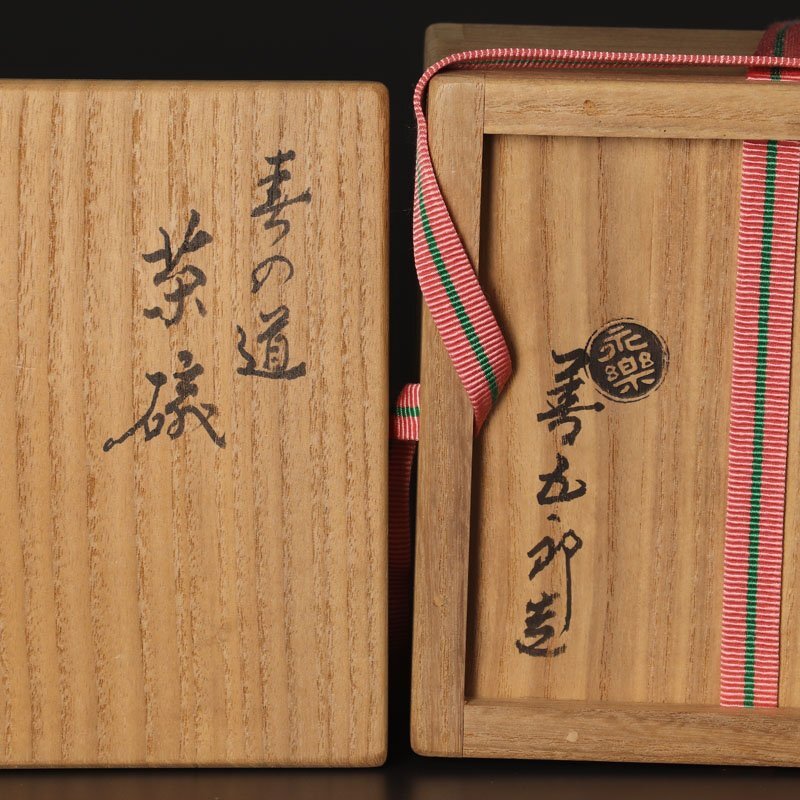 春の道
茶碗
永樂
善五郎造